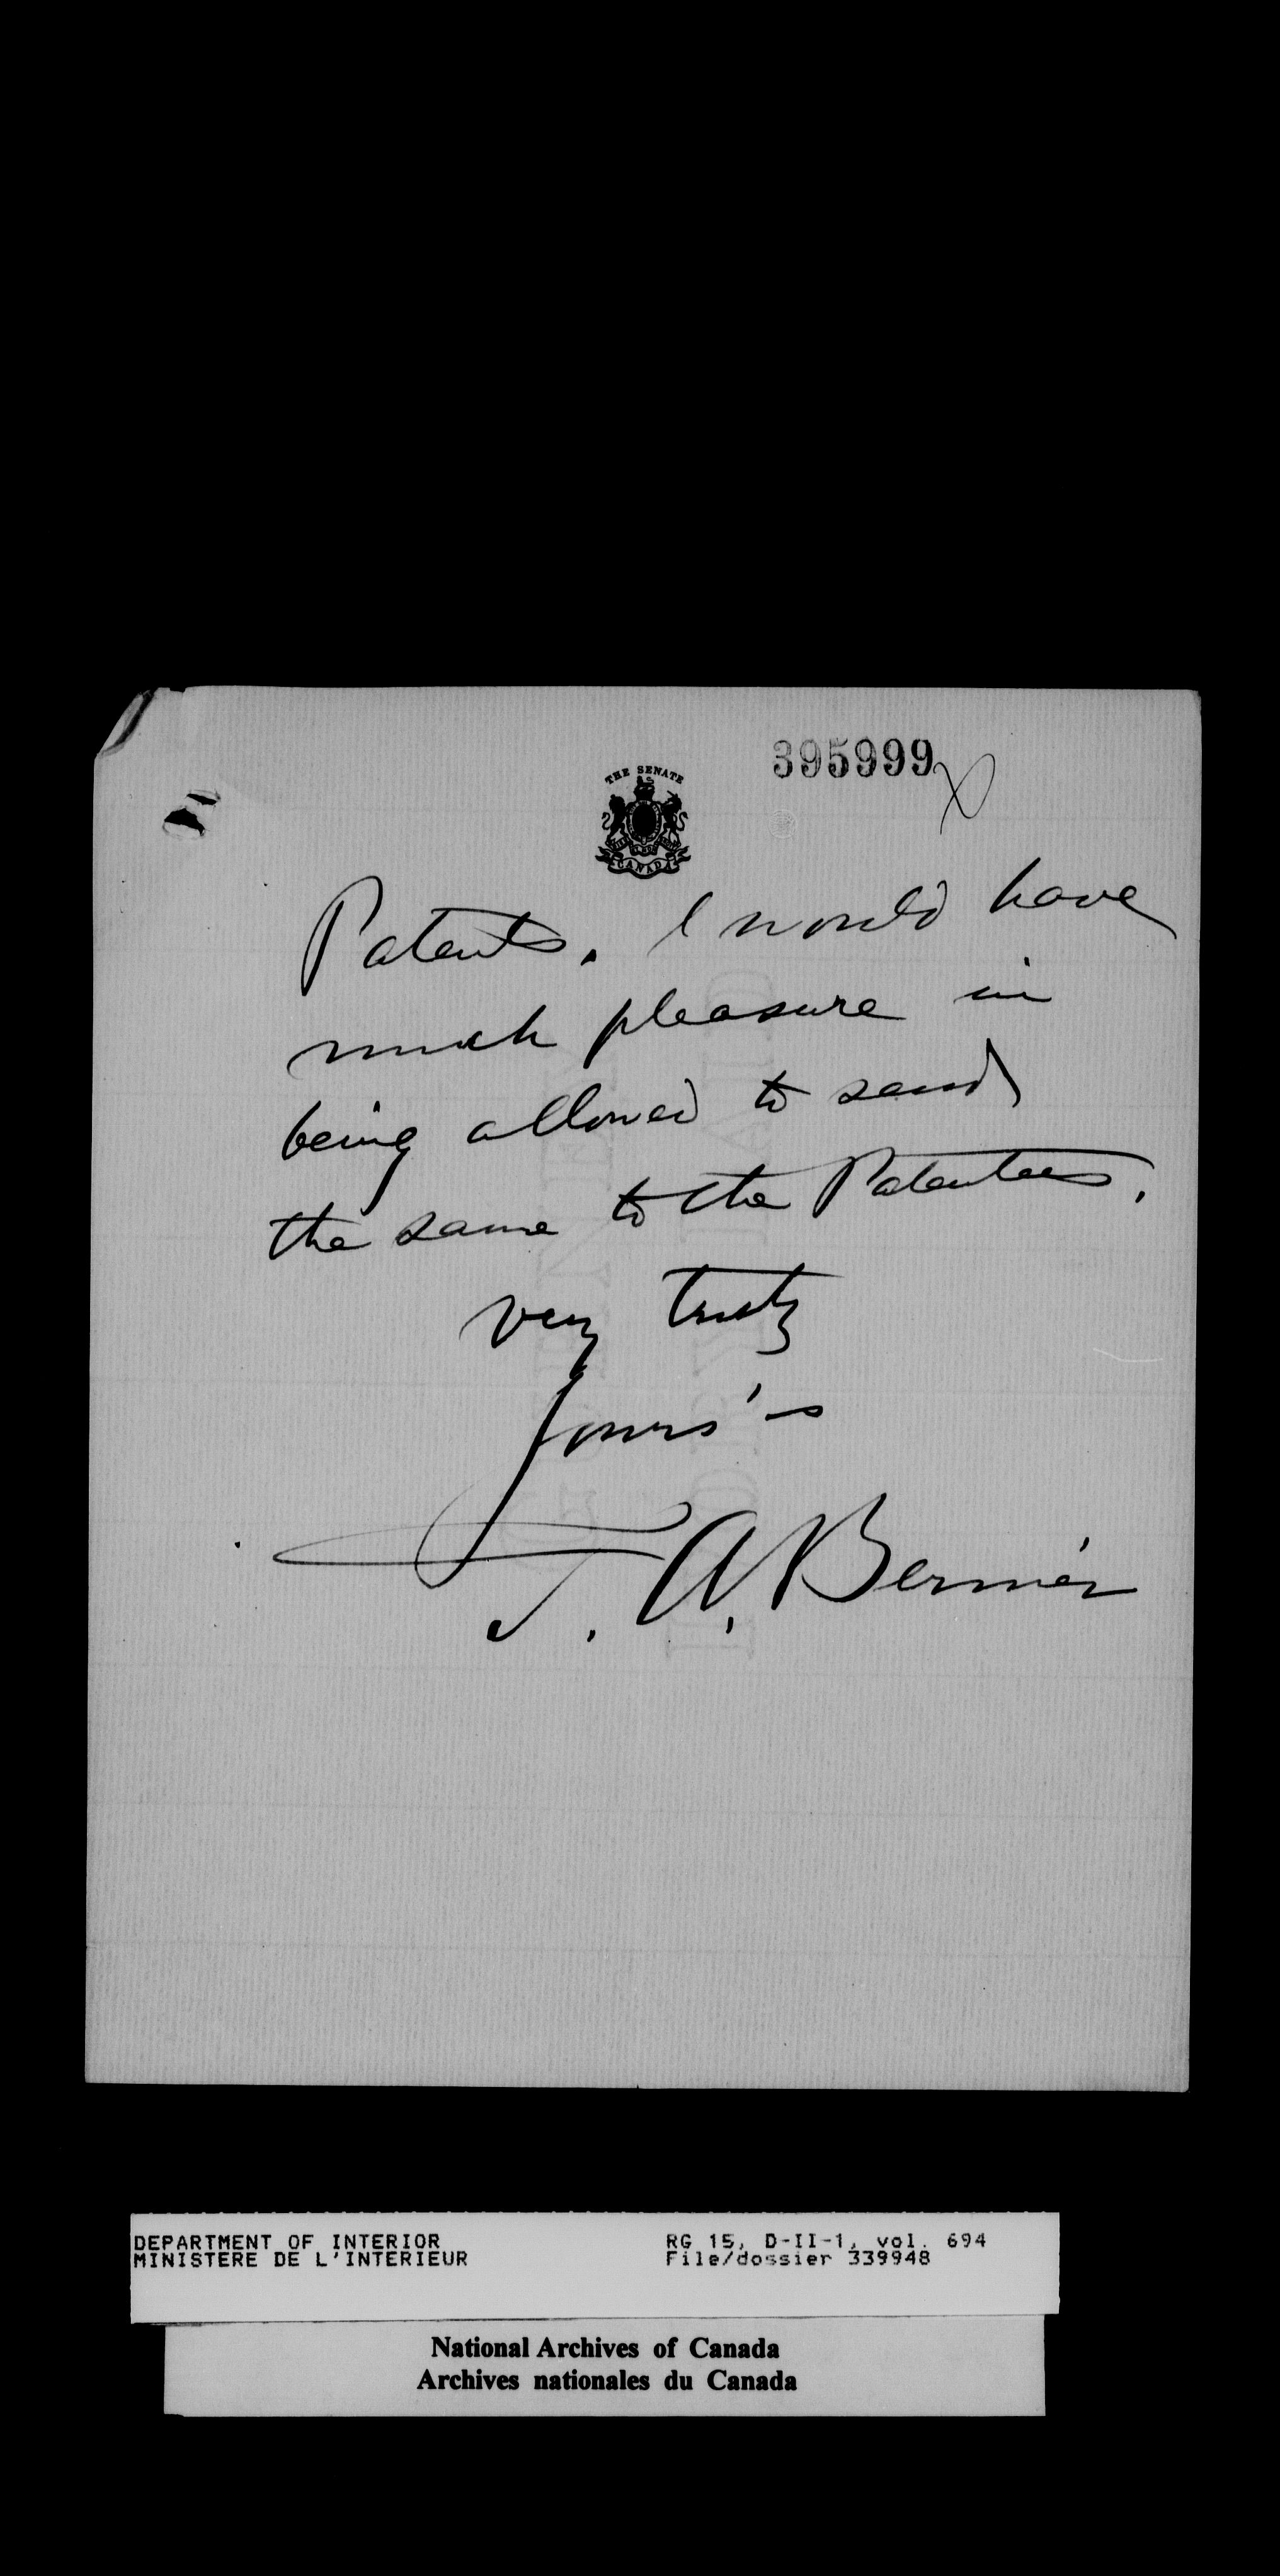 395999
THE SENATE
CANADA
Patents. I would have
much pleasure in
being allowed to send
the same to the Patentees.
Very truly
Yours
T. A. Bernier
DEPARTMENT OF INTERIOR
MINISTERE DE L'INTERIEUR
RG 15, D-II-1, vol. 694
File/dossier 339948
National Archives of Canada
Archives nationales du Canada